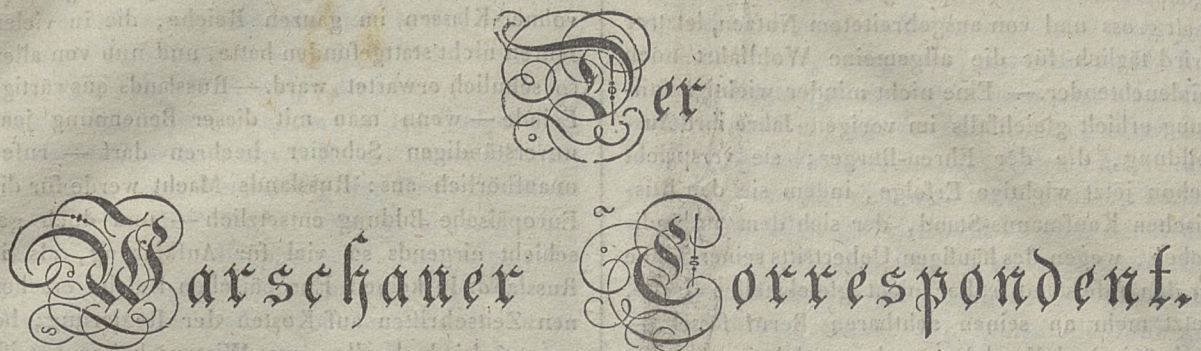 Der
Warschauer Correspondent.